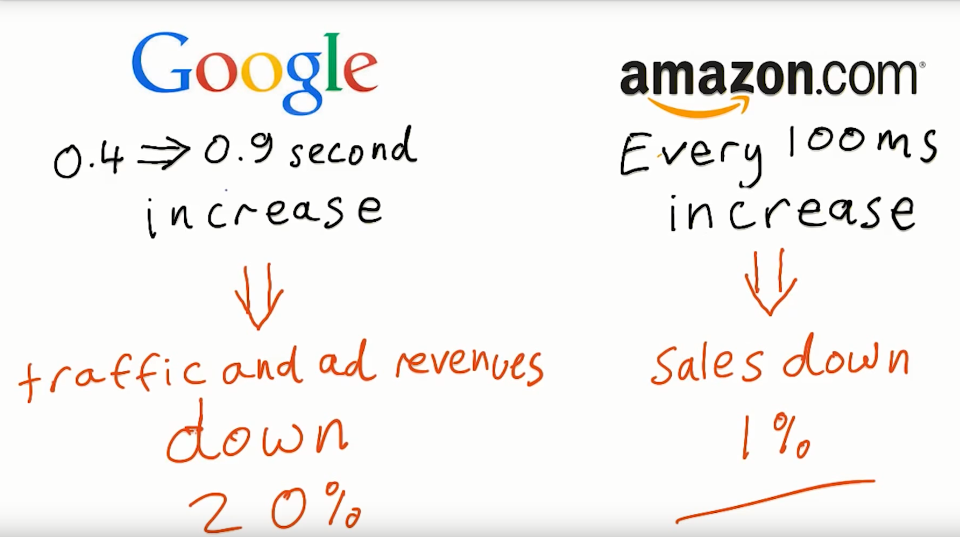 Google
0.4 ⇒ 0.9 second
increase
⇓
traffic and ad revenues
down
20%
amazon.com®
Every 100ms
increase
⇓
sales down
1%